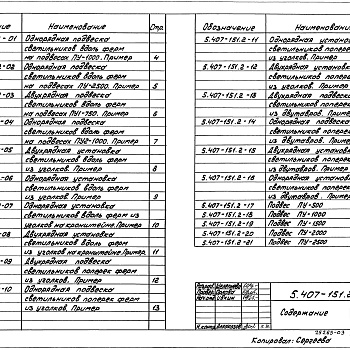 Наименование
Стр.
- 01
Однорядная подвеска
светильников вдоль ферм
на подвесах ПУ-1000. Пример
4
- 02
Однорядная подвеска
светильников вдоль ферм
на подвесах ПУ-2500. Пример
5
- 03
Двухрядная подвеска
светильников вдоль ферм
6
- 04
Однорядная подвеска
светильников вдоль ферм
7
- 05
Двухрядная установка
светильников вдоль ферм
из уголков. Пример
8
- 06
Однорядная установка
светильников вдоль ферм
из уголков. Пример
9
- 07
Однорядная установка
светильников вдоль ферм из
уголков на кронштейне. Пример
10
- 08
Двухрядная установка
светильников вдоль ферм
из уголков на кронштейне. Пример
11
- 09
Двухрядная подвеска
светильников поперек ферм
из уголков. Пример
12
- 10
Однорядная подвеска
светильников поперек ферм
из уголков. Пример
13
Обозначение
Наименование
5.407-151.2-11
Однорядная установ
светильников поперек
из уголков. Пример
5.407-151.2-12
Двухрядная установ
светильников поперек
из уголков. Пример
5.407-151.2-13
Двухрядная подвеска
светильников поперек
из двутавров. Пример
5.407-151.2-14
Однорядная подвеска
светильников поперек
из двутавров. Пример
5.407-151.2-15
Двухрядная установ
светильников поперек
из двутавров. Пример
5.407-151.2-16
Однорядная установ
светильников поперек
из двутавров. Пример
5.407-151.2-17
Подвес ПУ-500
5.407-151.2-18
Подвес ПУ-1000
5.407-151.2-19
Подвес ПУ-1500
5.407-151.2-20
Подвес ПУ-2000
5.407-151.2-21
Подвес ПУ-2500
5.407-151.2
Содержание
25265-03
Копировал: Сергеева